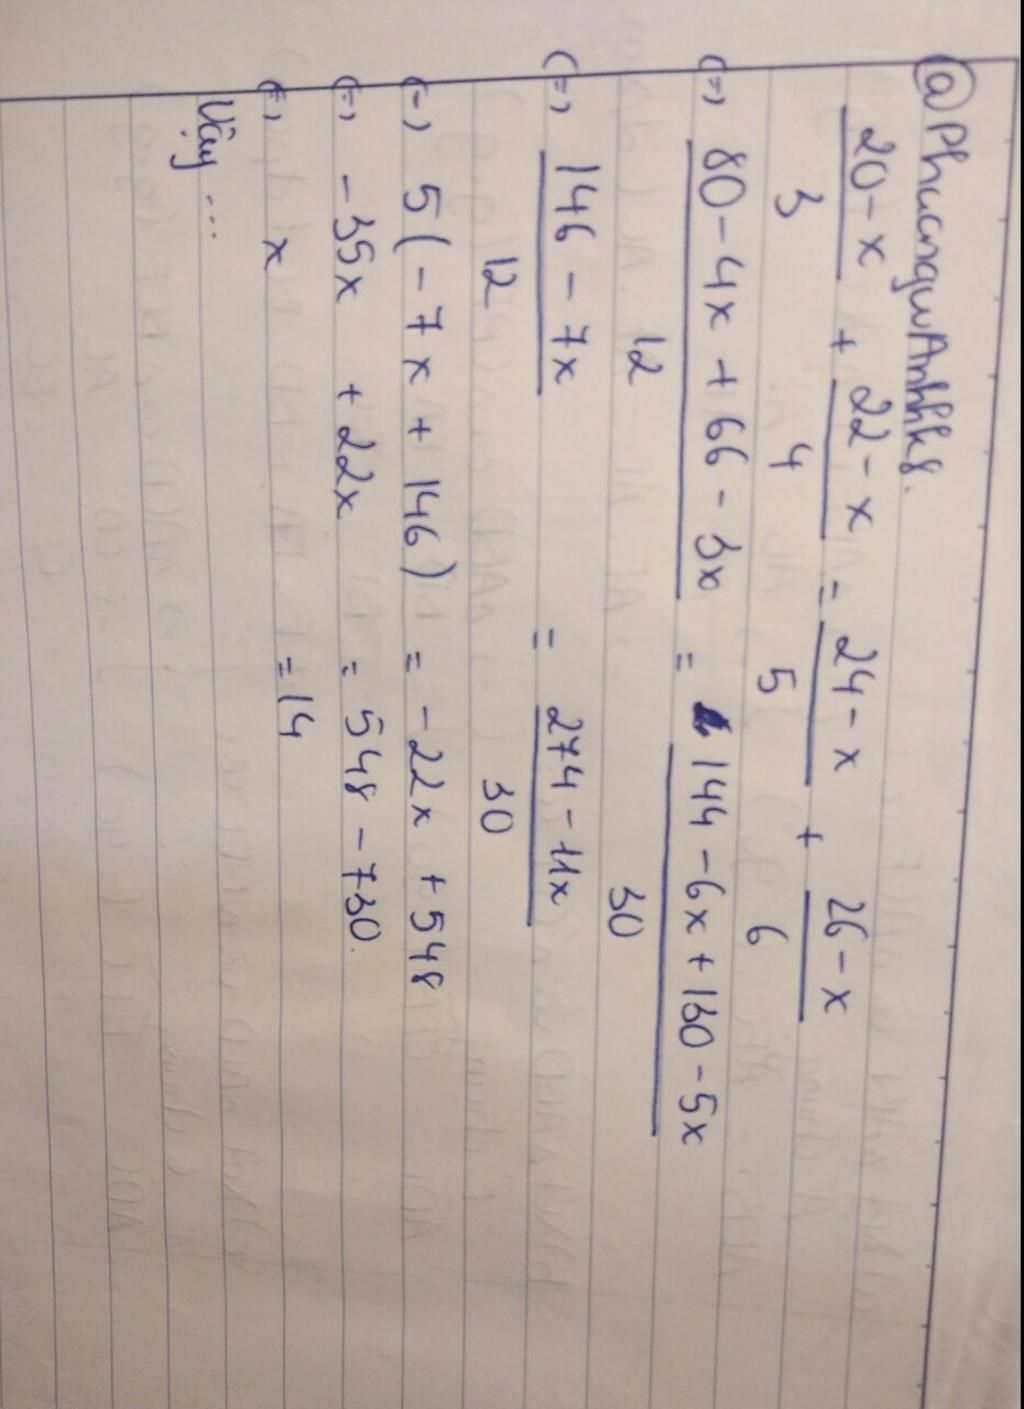 @PhuongwAnhhk8.
20-x/3 + 22-x/4 = 24-x/5 + 26-x/6
(=) 80-4x+66-3x/12 = 144-6x+130-5x/30
(=) 146-7x/12 = 274-11x/30
(=) 5(-7x+146) = -22x+548
(=) -35x +22x = 548-730
(=) x = 14
Vậy ...